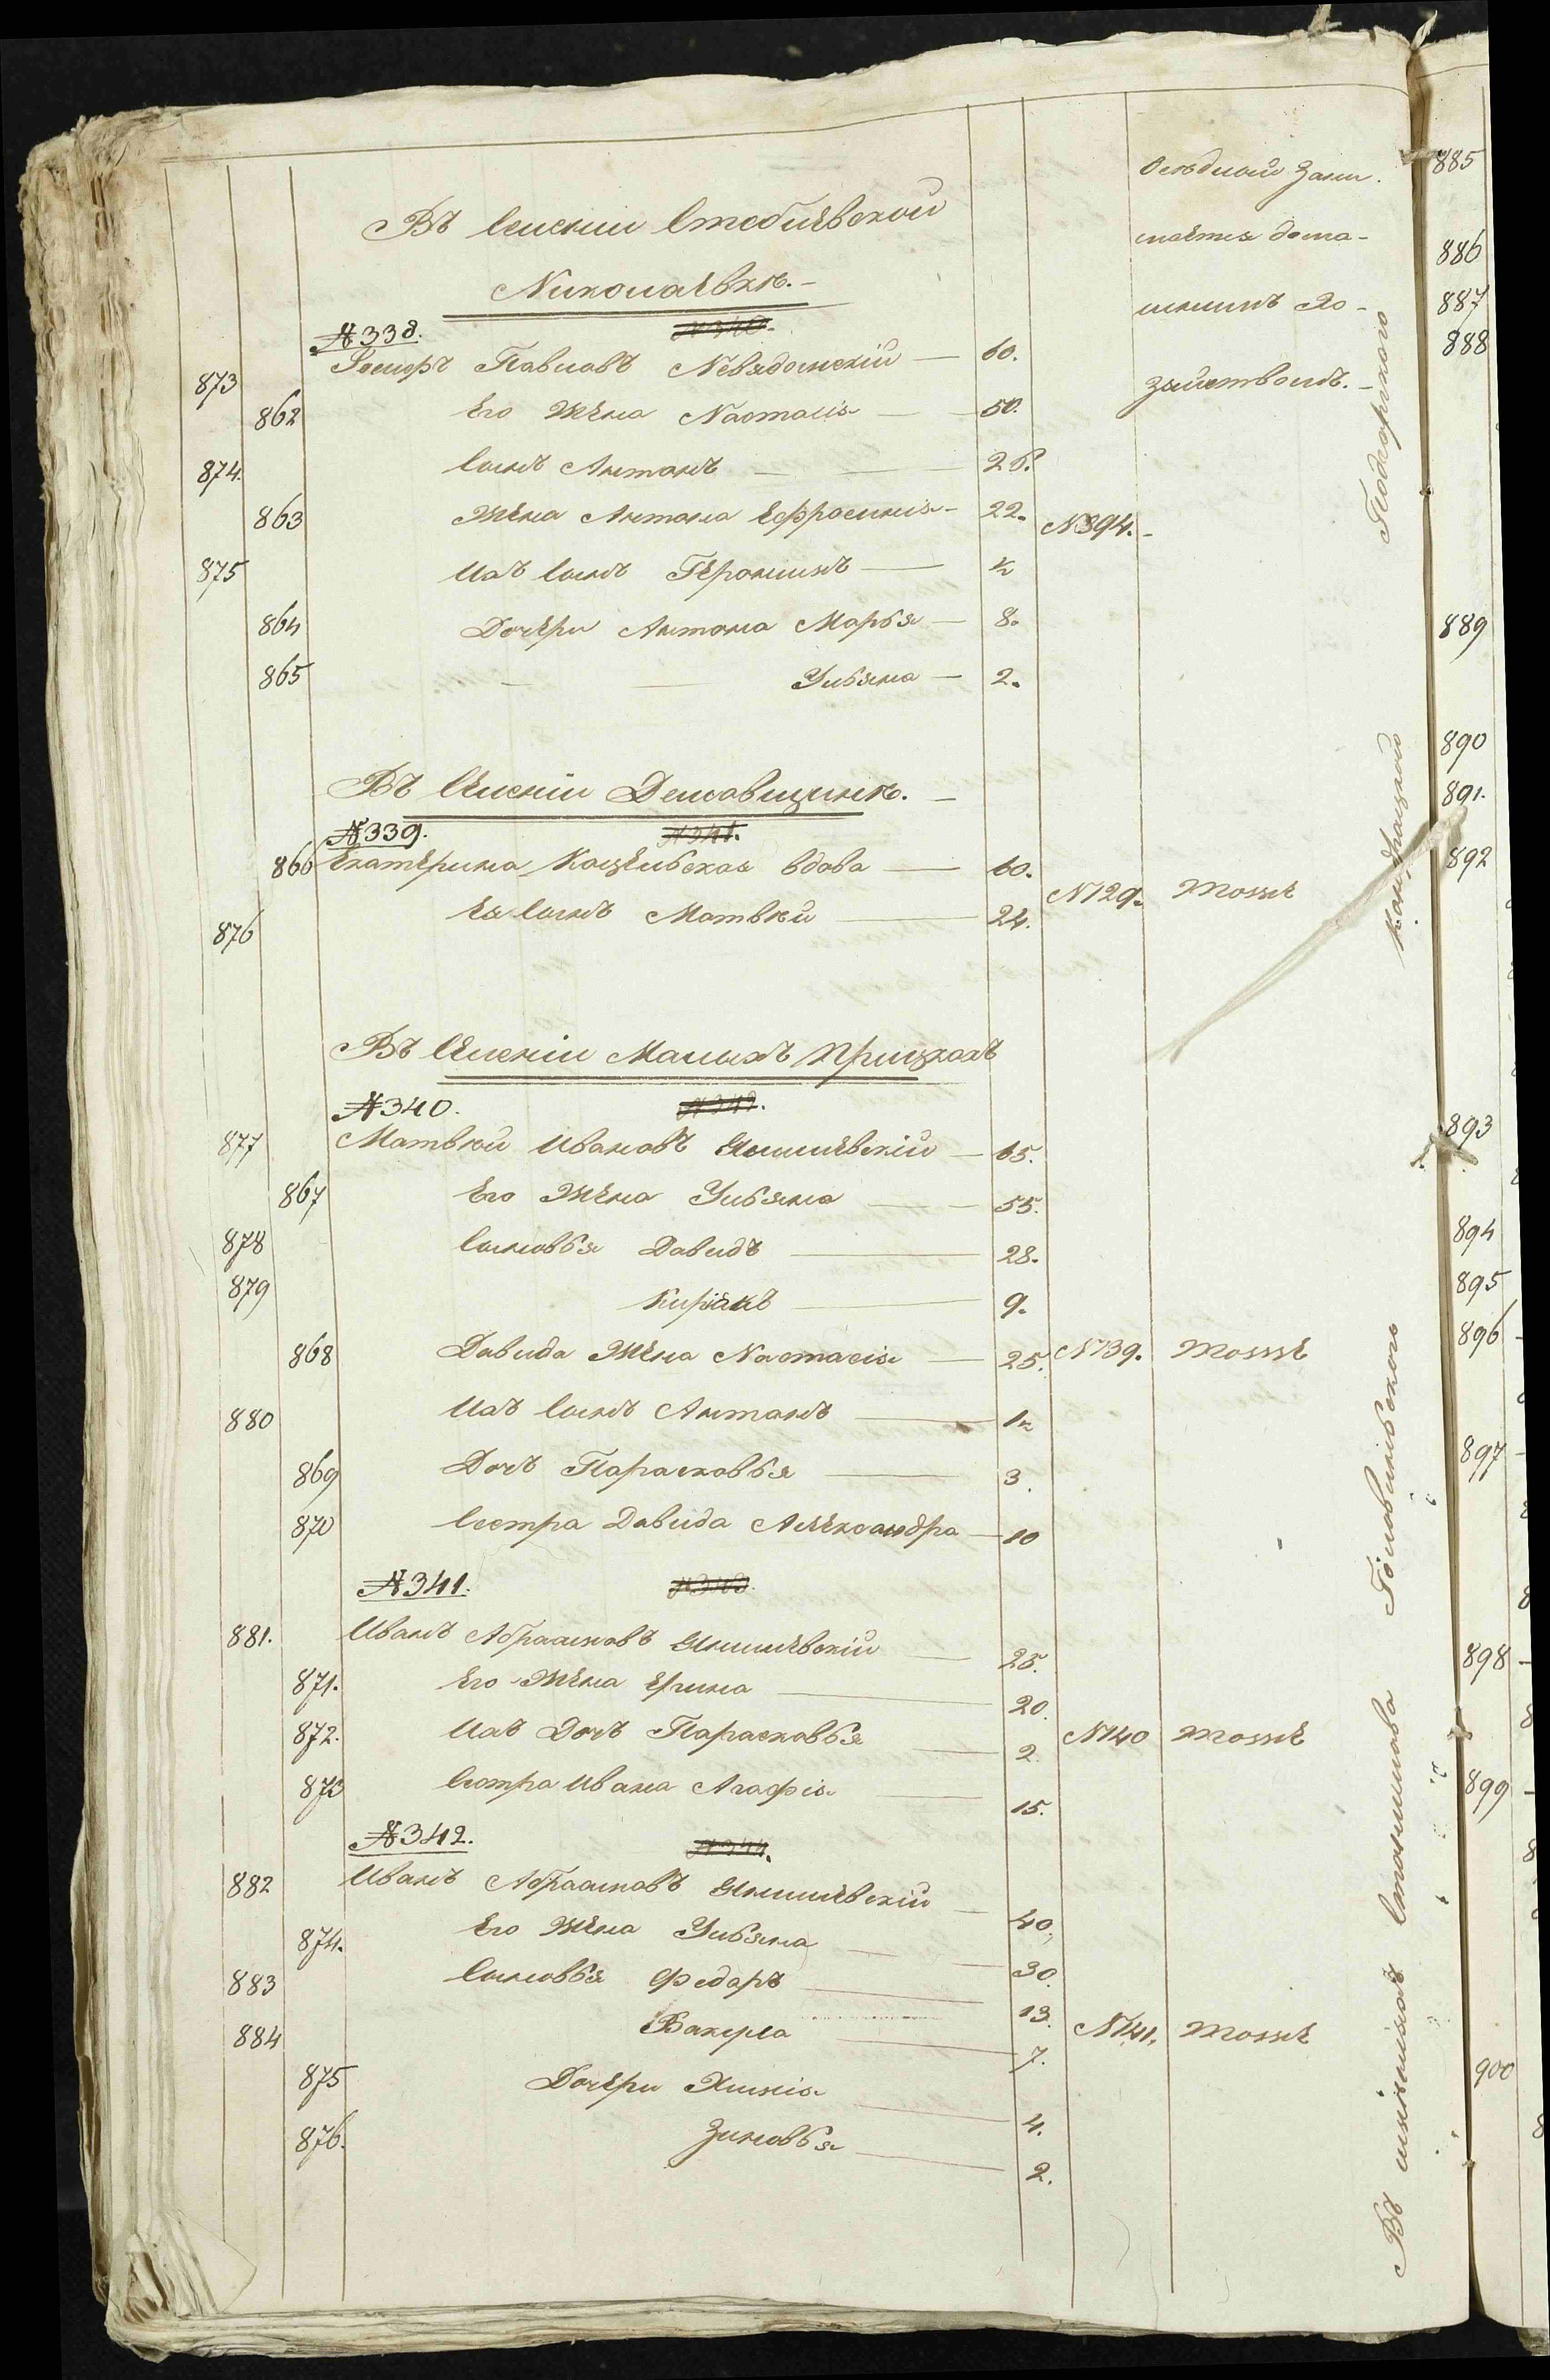 Въ Селеніи Стебнѣвской
Николаевкѣ.-
№338.
873 Іосифъ Павловъ Невядомскій — 60.
862 Его Жена Настасія — 50.
874. Сынъ Антонъ — 26.
863 Жена Антона Ефросинія - 22. №394.-
875 Ихъ Сынъ Геронимъ — ½
864 Дочери Антона Марья — 8.
865 Ульяна — 2.
осѣдлый Зани-
мается дома-
шнимъ Хо-
зяйствомъ.-
Въ Селеніи Демовщинѣ.-
№339. №341.
866 Екатерина Коцельская вдова — 60.
876 Ея Сынъ Матвѣй — 24. №129. Тоже
Въ Селеніи Малыхъ Прицкахъ
№340. №342.
877 Матвѣй Ивановъ Яншевскій — 65.
867 Его Жена Ульяна — 55.
878 Сыновья Давидъ — 28.
879 Киріакъ — 9.
868 Давида Жена Настасія — 25. №139. Тоже
880 Ихъ Сынъ Антонъ — ½
869 Дочь Парасковья — 3.
870 Сестра Давида Александра — 10
№341. №343.
881. Иванъ Абрамовъ Яншевскій — 25.
871. Его Жена Ерина — 20.
872. Ихъ Дочь Парасковья — 2. №140 Тоже
873 Сестра Ивана Агафія — 15.
№342. №344.
882 Иванъ Абрамовъ Яншевскій — 40.
874. Его Жена Ульяна — 30.
883 Сыновья Федоръ — 13.
884 — 7. №141. Тоже
875 Дочери Химія — 4.
876. Зиновья — 2.
885
886
887
888
889
890
891.
892
893
894
895
896
897
898
899
900